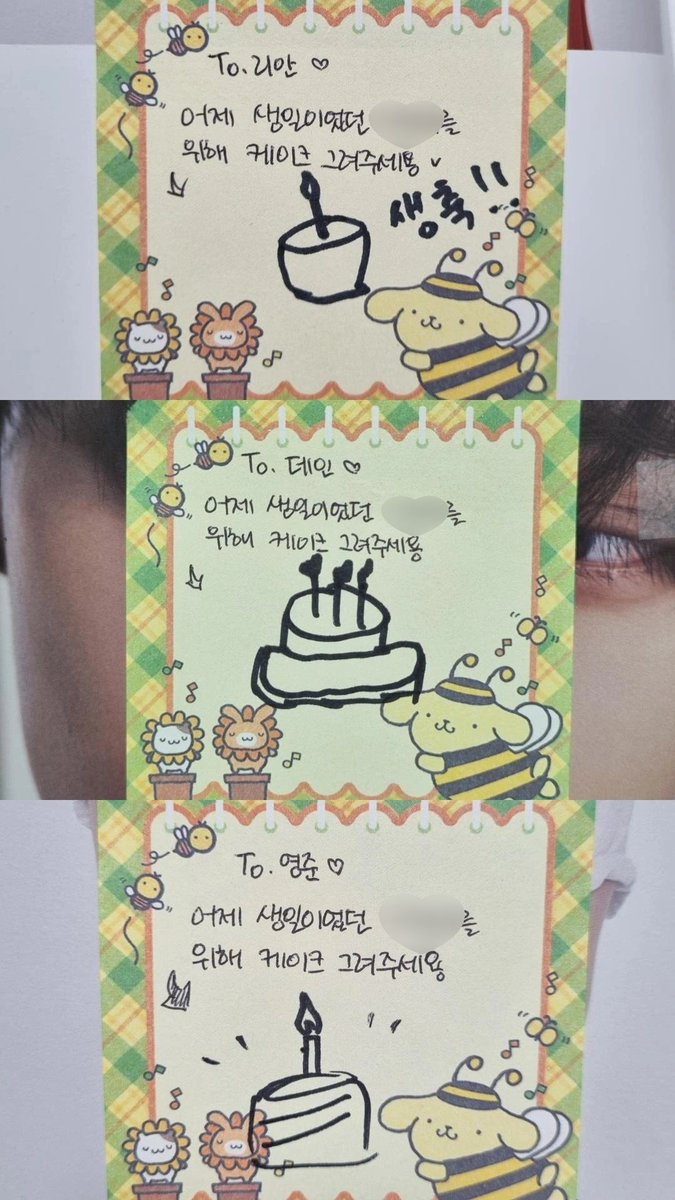 To. 리안 ♡
어제 생일이었던 를
위해 케이크 그려주세용
생축!!
To. 데인 ♡
어제 생일이었던 를
위해 케이크 그려주세용
To. 영준 ♡
어제 생일이었던 를
위해 케이크 그려주세용